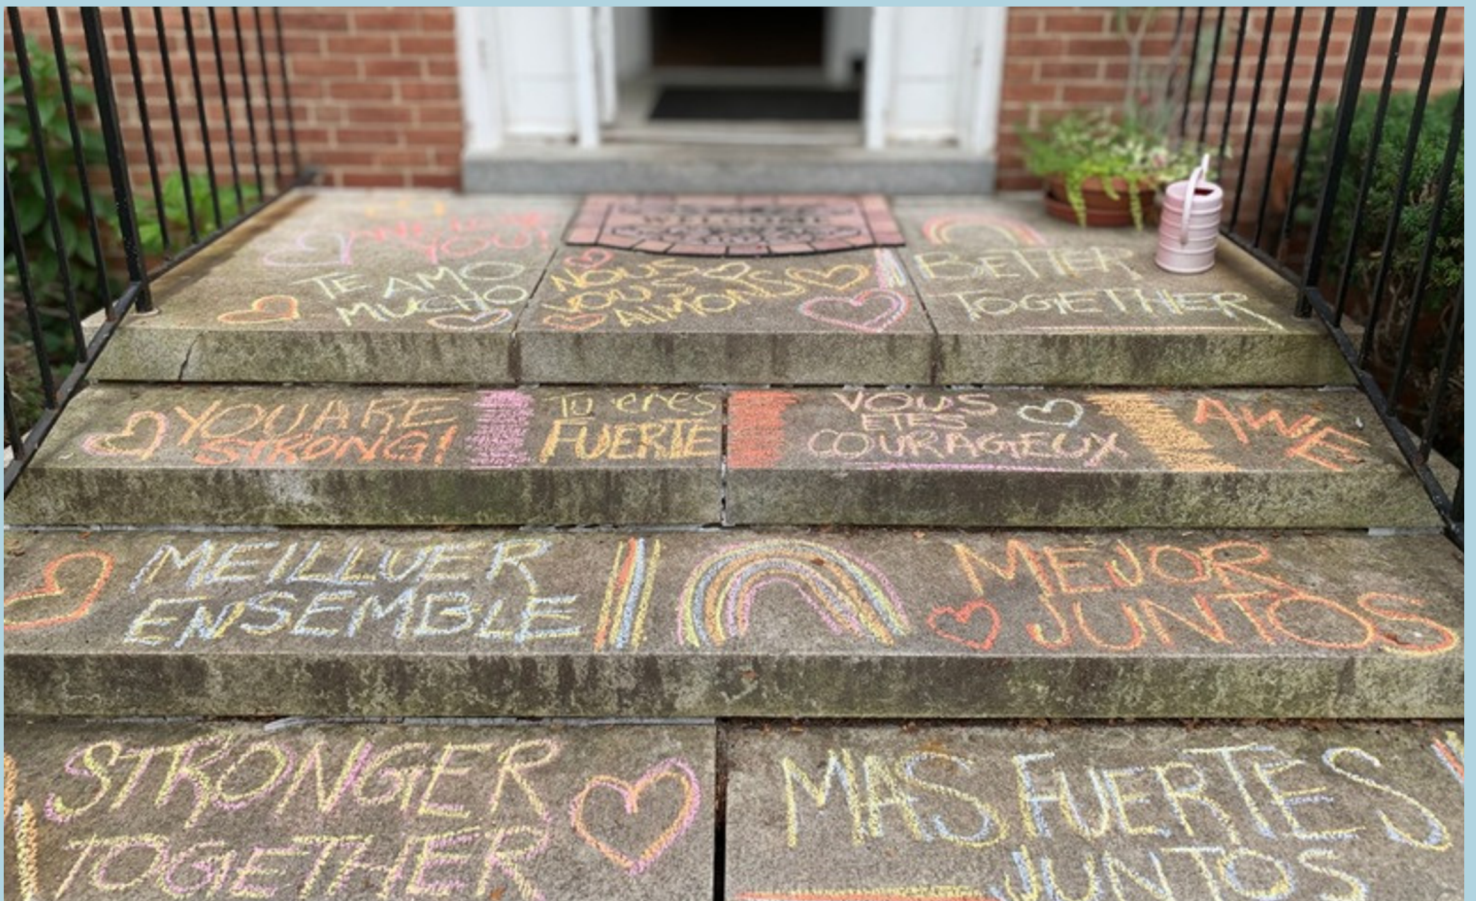 WE LOVE
YOU!
TE AMO
MUCHO
WELCOME
NOUS
VOUS
AIMONS
BETTER
TOGETHER
YOU ARE
STRONG!
Tu eres
FUERTE
VOUS
ETES
COURAGEUX
MEILLUER
ENSEMBLE
MEJOR
JUNTOS
STRONGER
TOGETHER
MAS FUERTES
JUNTOS